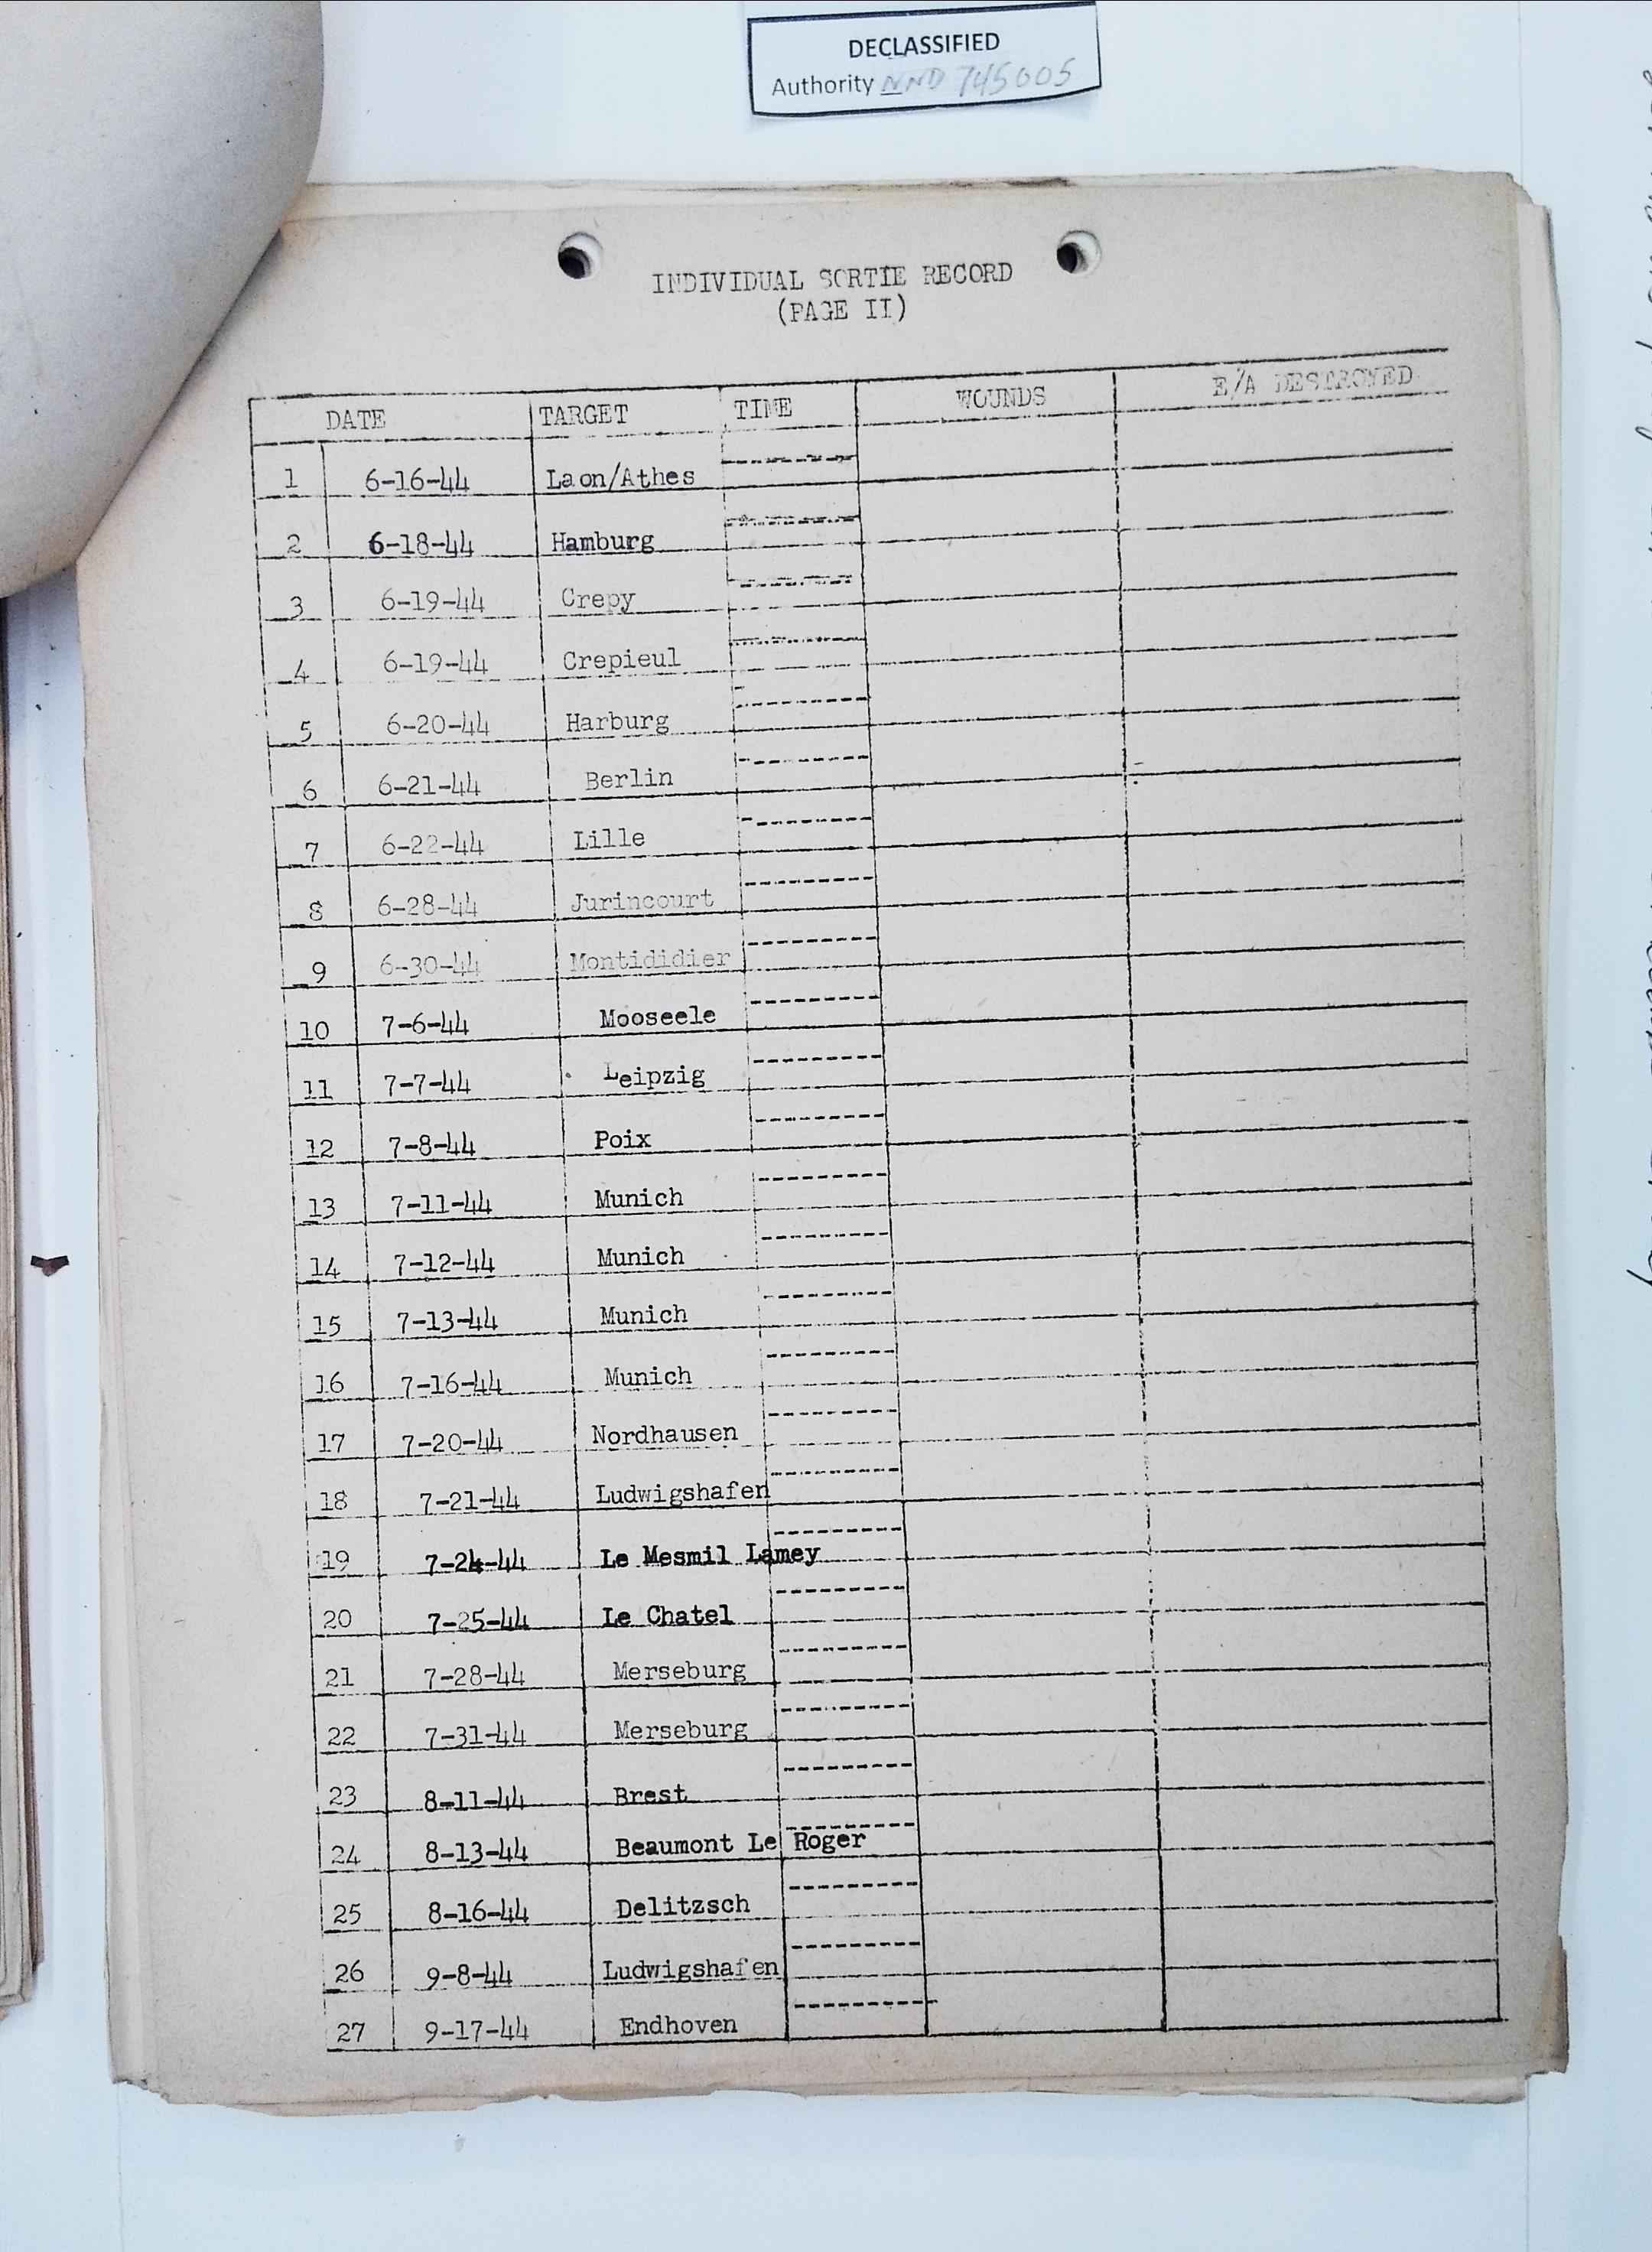 DECLASSIFIED
Authority NND 745005
INDIVIDUAL SORTIE RECORD
(PAGE II)
DATE TARGET TIME WOUNDS E/A DESTROYED
1 6-16-44 Laon/Athes
2 6-18-44 Hamburg
3 6-19-44 Crepy
4 6-19-44 Crepieul
5 6-20-44 Harburg
6 6-21-44 Berlin
7 6-22-44 Lille
8 6-28-44 Jurincourt
9 6-30-44 Montididier
10 7-6-44 Mooseele
11 7-7-44 Leipzig
12 7-8-44 Poix
13 7-11-44 Munich
14 7-12-44 Munich
15 7-13-44 Munich
16 7-16-44 Munich
17 7-20-44 Nordhausen
18 7-21-44 Ludwigshafen
19 7-24-44 Le Mesmil Lamey
20 7-25-44 Le Chatel
21 7-28-44 Merseburg
22 7-31-44 Merseburg
23 8-11-44 Brest
24 8-13-44 Beaumont Le Roger
25 8-16-44 Delitzsch
26 9-8-44 Ludwigshafen
27 9-17-44 Endhoven